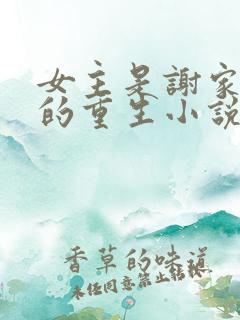 女主是謝家
的重生小說
香草的味道
未经同意禁止转载